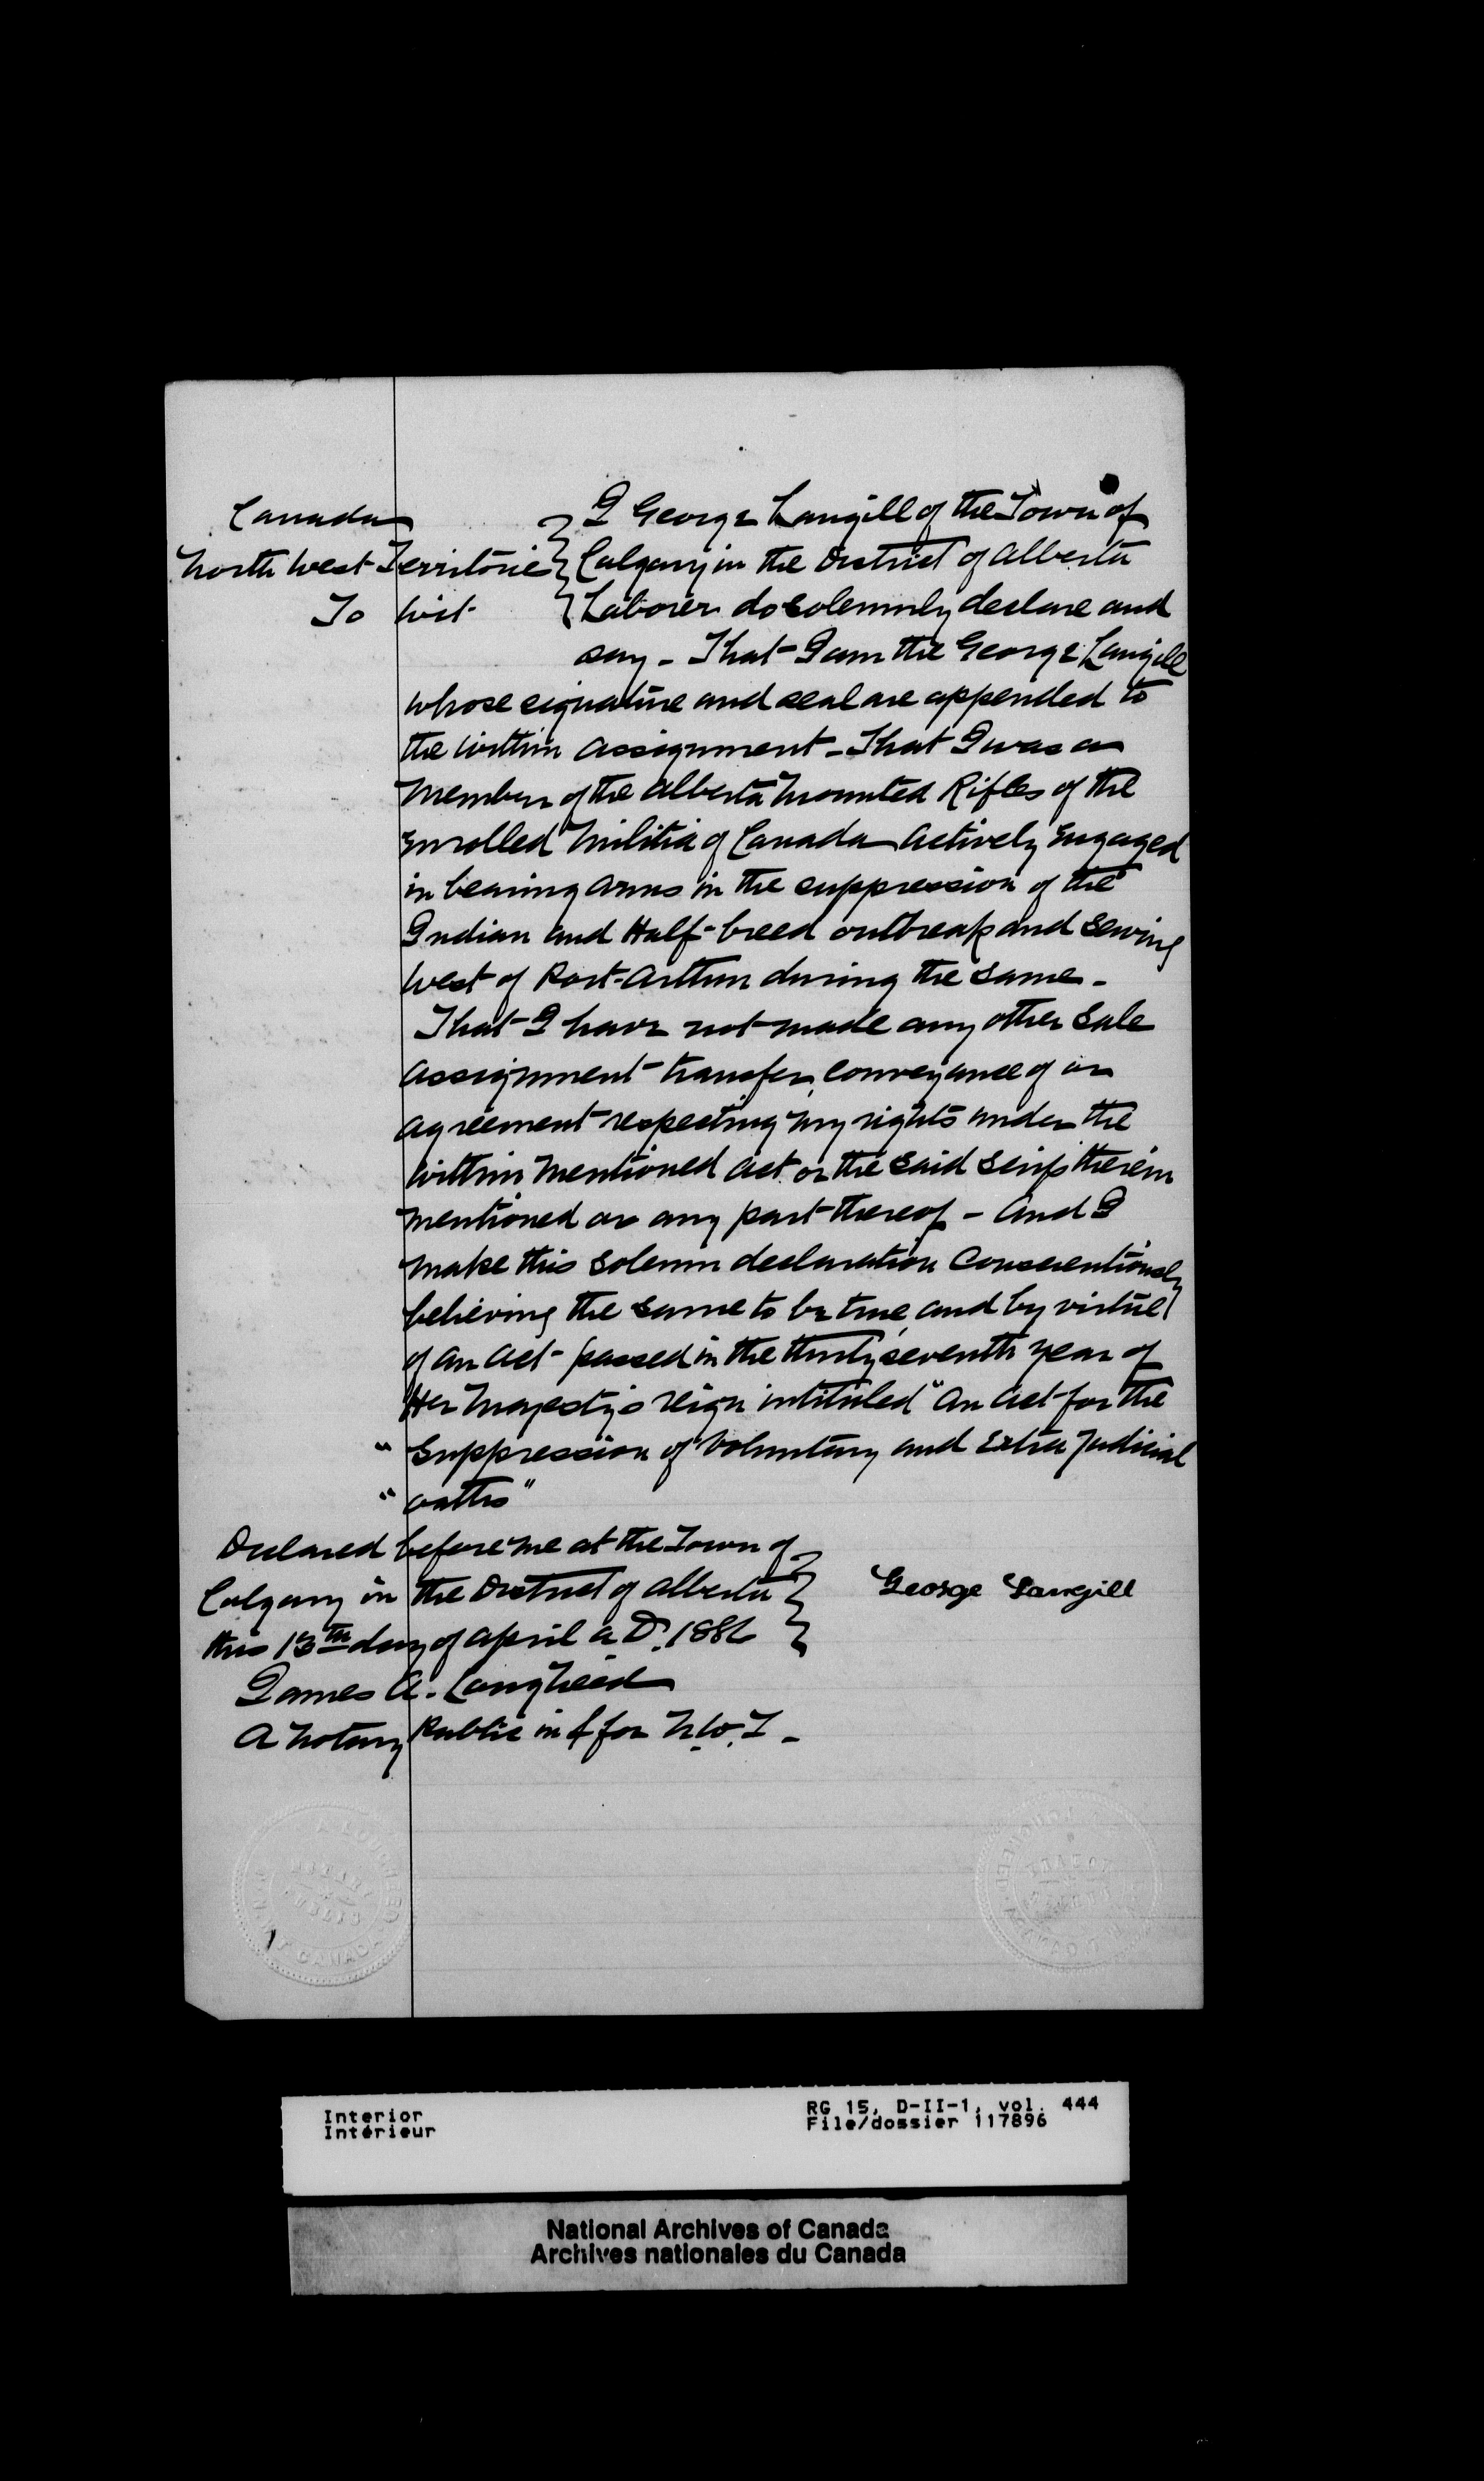 Canada } I George Langill of the Town of
North West Territorie } Calgary in the District of Alberta
To wit } Laborer do solemnly declare and
say - That I am the George Langill
whose signature and seal are appended to
the within assignment - That I was a
member of the Alberta Mounted Rifles of the
enrolled Militia of Canada actively engaged
in bearing arms in the suppression of the
Indian and Half-breed outbreak and serving
west of Port-Arthur during the same -
That I have not made any other sale
assignment transfer, conveyance of or
agreement respecting my rights under the
within mentioned act or the said scrip therein
mentioned or any part thereof - And I
make this solemn declaration conscientiously
believing the same to be true, and by virtue
of an act passed in the thirty seventh year of
Her Majesty's reign intituled "An Act for the
" Suppression of Voluntary and Extra Judicial
" oaths"
Declared before me at the Town of }
Calgary in the District of Alberta } George Langill
this 13th day of April A.D. 1886 }
James A. Lougheed
A Notary Public in & for N.W.T -
A LOUGHEED
NOTARY
PUBLIC
CANADA
Interior
Intérieur
RG 15, D-II-1, vol. 444
File/dossier 117896
National Archives of Canada
Archives nationales du Canada